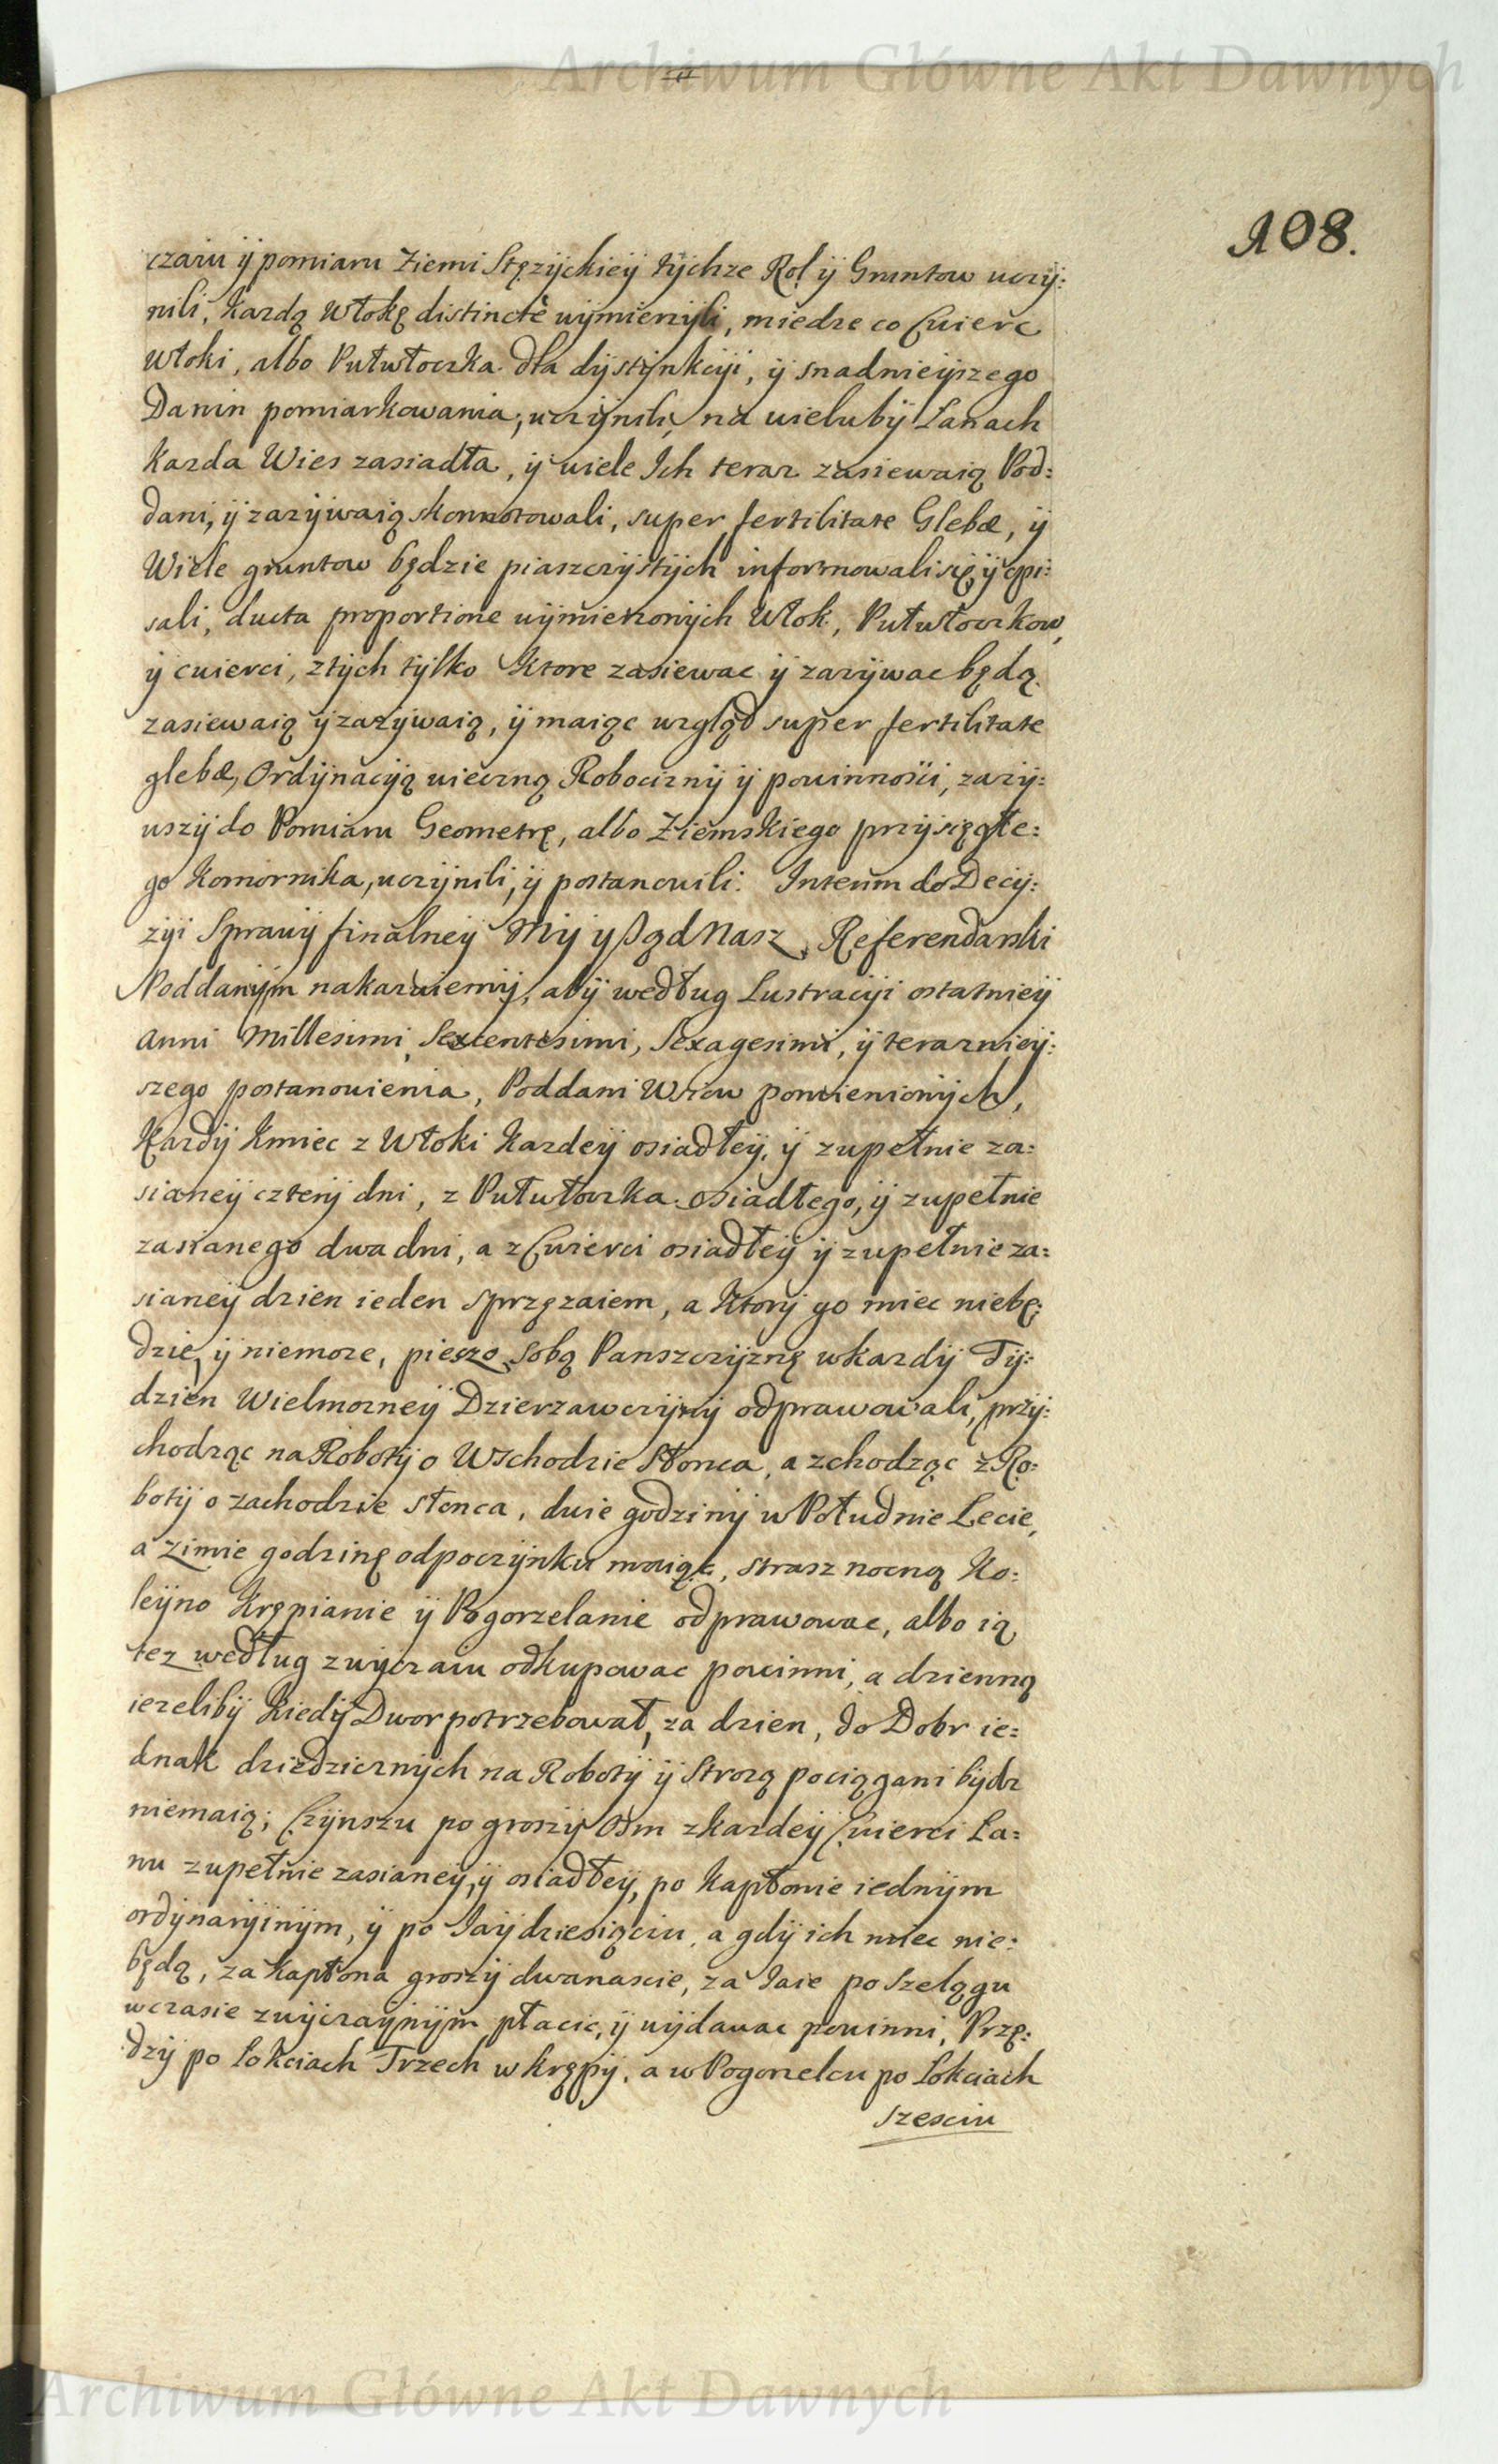 Archiwum Główne Akt Dawnych
108.
czaiu ÿ pomiaru Ziemi Stężÿckieÿ tÿchże Rol ÿ Gruntow uczÿ:
nili, Kazdą Włokę distinctè wÿmierzÿli, miedze co Cwierc
Włoki, albo Pułwłoczka dla dÿstÿnkcÿi, ÿ snadnieÿszego
Danin pomiarkowania, uczÿnili, na wielubÿ Łanach
Kazda Wies zasiadła, ÿ wiele Ich teraz zasiewaią Pod:
dani, ÿ zazÿwaią skonnotowali, super fertilitate Glebæ, ÿ
Wiele gruntow będzie piaszczÿstÿch informowali się, ÿ opi:
sali, ducta proportione wÿmierzonÿch Włok, Pułwłoczkow,
ÿ cwierci, z tÿch tÿlko Ktore zasiewac ÿ zazÿwac będą,
zasiewaią ÿ zazÿwaią, ÿ maiąc wzgląd super fertilitate
glebæ, Ordÿnacÿą wieczną Robociznÿ ÿ powinnosci, zazÿ:
wszÿ do Pomiaru Geometrę, albo Ziemskiego przÿsięgłe:
go Komornika, uczÿnili, ÿ postanowili. Interim do Decÿ:
zÿi Sprawÿ finalneÿ Mÿ y Sąd Nasz Referendarski
Poddanÿm nakazuiemÿ, abÿ według Lustracÿi ostatnieÿ
Anni Millesimi Sexcentesimi, Sexagesimi, ÿ teraznieÿ:
szego postanowienia, Poddani Wsiow pomienionÿch,
Kazdÿ Kmiec z Włoki Kazdeÿ osiadłeÿ, ÿ zupełnie za:
sianeÿ czterÿ dni, z Pułwłoczka osiadłego, ÿ zupełnie
zasianego dwa dni, a z Cwierci osiadłeÿ ÿ zupełnie za:
sianeÿ dzien ieden sprzęzaiem, a Ktorÿ go miec niebę:
dzie, ÿ niemoze, pieszo sobą Panszczÿznę w kazdÿ Tÿ:
dzien Wielmozneÿ Dzierzawczÿnÿ odprawowali, przÿ:
chodząc na Robotÿ o Wschodzie Słonca, a zchodząc z Ro:
botÿ o zachodzie słonca, dwie godzinÿ w Południe Lecie,
a Zimie godzinę odpoczÿnku maiąc, strasz nocną Ko:
leÿno Krępianie ÿ Pogorzelanie odprawowac, albo ią
tez według zwÿczaiu odkupowac powinni, a dzienną
iezelibÿ Kiedÿ Dwor potrzebował, za dzien, do Dobr ie:
dnak dziedzicznÿch na Robotÿ ÿ Strozą pociągani bÿdz
niemaią; Czÿnszu po groszÿ Osm z kazdeÿ Cwierci Ła:
nu zupełnie zasianeÿ, ÿ osiadłeÿ, po Kapłonie iednÿm
ordÿnarÿinÿm, ÿ po Iaÿ dziesięciu, a gdÿ ich miec nie:
będą, za Kapłona groszÿ dwanascie, za Iaie po Szelągu
w czasie zwÿczaÿnÿm płacic, ÿ wÿdawac powinni, Przę:
dzÿ po Łokciach Trzech w Krępÿ, a w Pogorzelcu po Łokciach
szesciu
Archiwum Główne Akt Dawnych